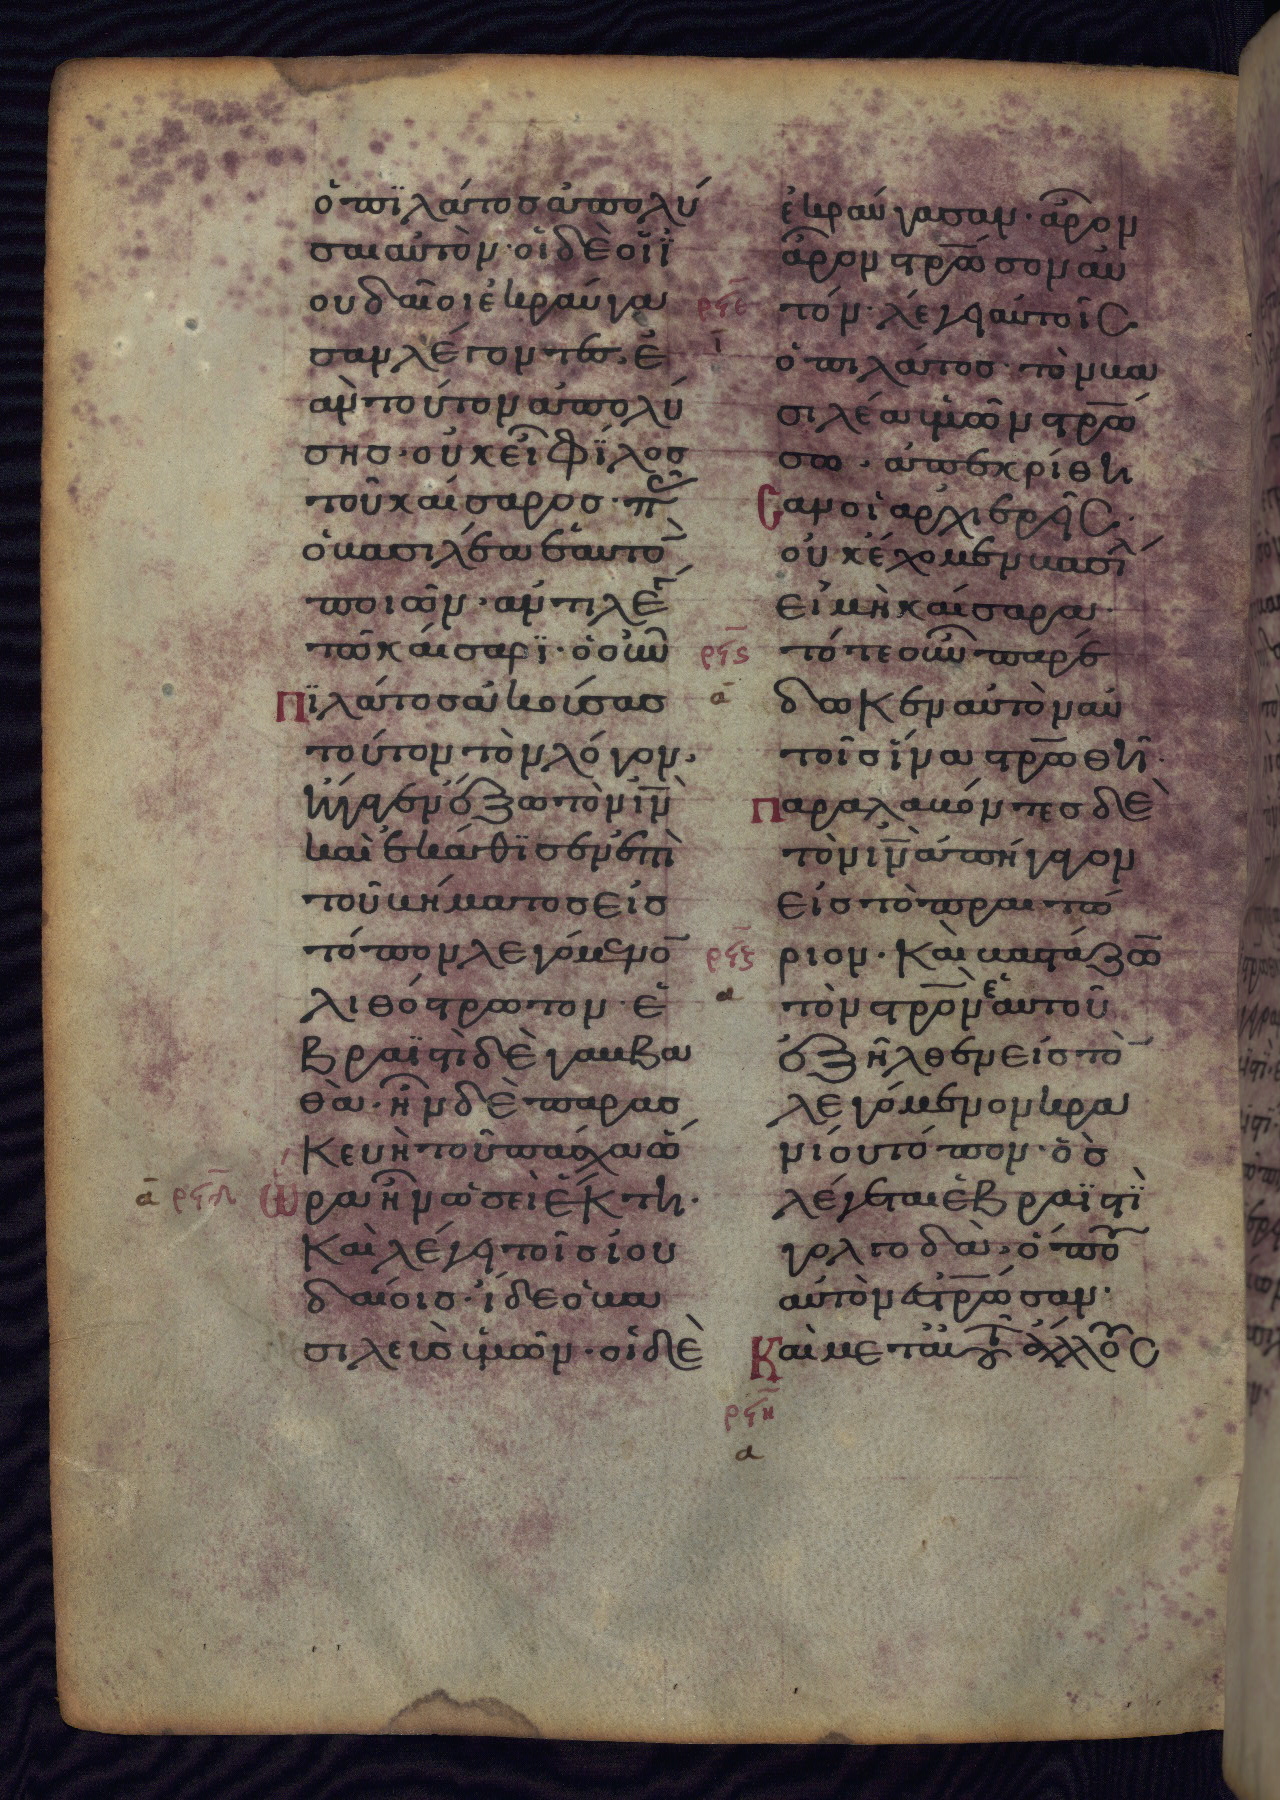 ὁ πϊλάτοσ ἀπολύ
σαι αὐτὸν· οἱ δὲ οἱ ϊ
ουδαῖοι ἐκραύγα
σαν λέγοντεσ· ἐ
ὰν τούτον ἀπολύ
σησ· οὐκ εἶ φίλοσ
τοῦ καίσαροσ· πᾶσ
ὁ βασιλέα ἑαυτὸ̄
ποιῶν· ἀντιλέγ
τῶ καίσαρϊ· ὁ οὖν
Πϊλάτοσ ἀκούσασ
τούτον τὸν λόγον·
ἤγαγεν ἔξω τὸν ι̅ν̅
καὶ ἐκάθϊσεν ἐπὶ
τοῦ βήματοσ εἰσ
τόπον λεγόμενο̄
λιθόστρωτον· ἑ
βραϊστὶ δὲ γαββα
θὰ· ἦν δὲ παρασ
κευὴ τοῦ πάσχα ὥ
ρα ἦν ὡσεὶ ἕκτη·
Καὶ λέγει τοῖσ ἰου
δαίοισ· ἴδε ὁ βα
σιλεὺσ ὑμῶν· οἱ δὲ
ἐκραύγασαν· ἆρον
ἆρον σ̅ρ̅ωσον αὐ
τόν· λέγει αὐτοῖσ
ὁ πιλάτοσ· τὸν βα
σιλέα ὑμῶν σ̅ρ̅ώ
σω· ἀπεκρίθη
Σαν οἱ ἀρχιερεῖσ·
οὐκ ἔχομεν βασιλ
εἰ μὴ καίσαρα·
τότε οὖν παρέ
δωκεν αὐτὸν αὐ
τοῖσ ἵνα σ̅ρ̅ωθῆ·
Παραλαβόντεσ δὲ
τὸν ι̅ν̅ ἀπήγαγον
εἰσ τὸ πραιτώ
ριον· Καὶ βαστάζω̄
τὸν σ̅ρ̅ο̅ν̅ ἑαυτοῦ
ἐξῆλθεν εἰσ τὸ̄
λεγόμενον κρα
νίου τόπον· ὃσ
λέγεται ἑβραϊστὶ
γολγοθὰ· ὅπου
αὐτὸν ἐσ̅ρ̅ώσαν·
Καὶ μετ' αὐτοῦ ἄλλουσ
ρϟε
ι
ρϟϛ
α
ρϟζ
α
α ρϟη
α